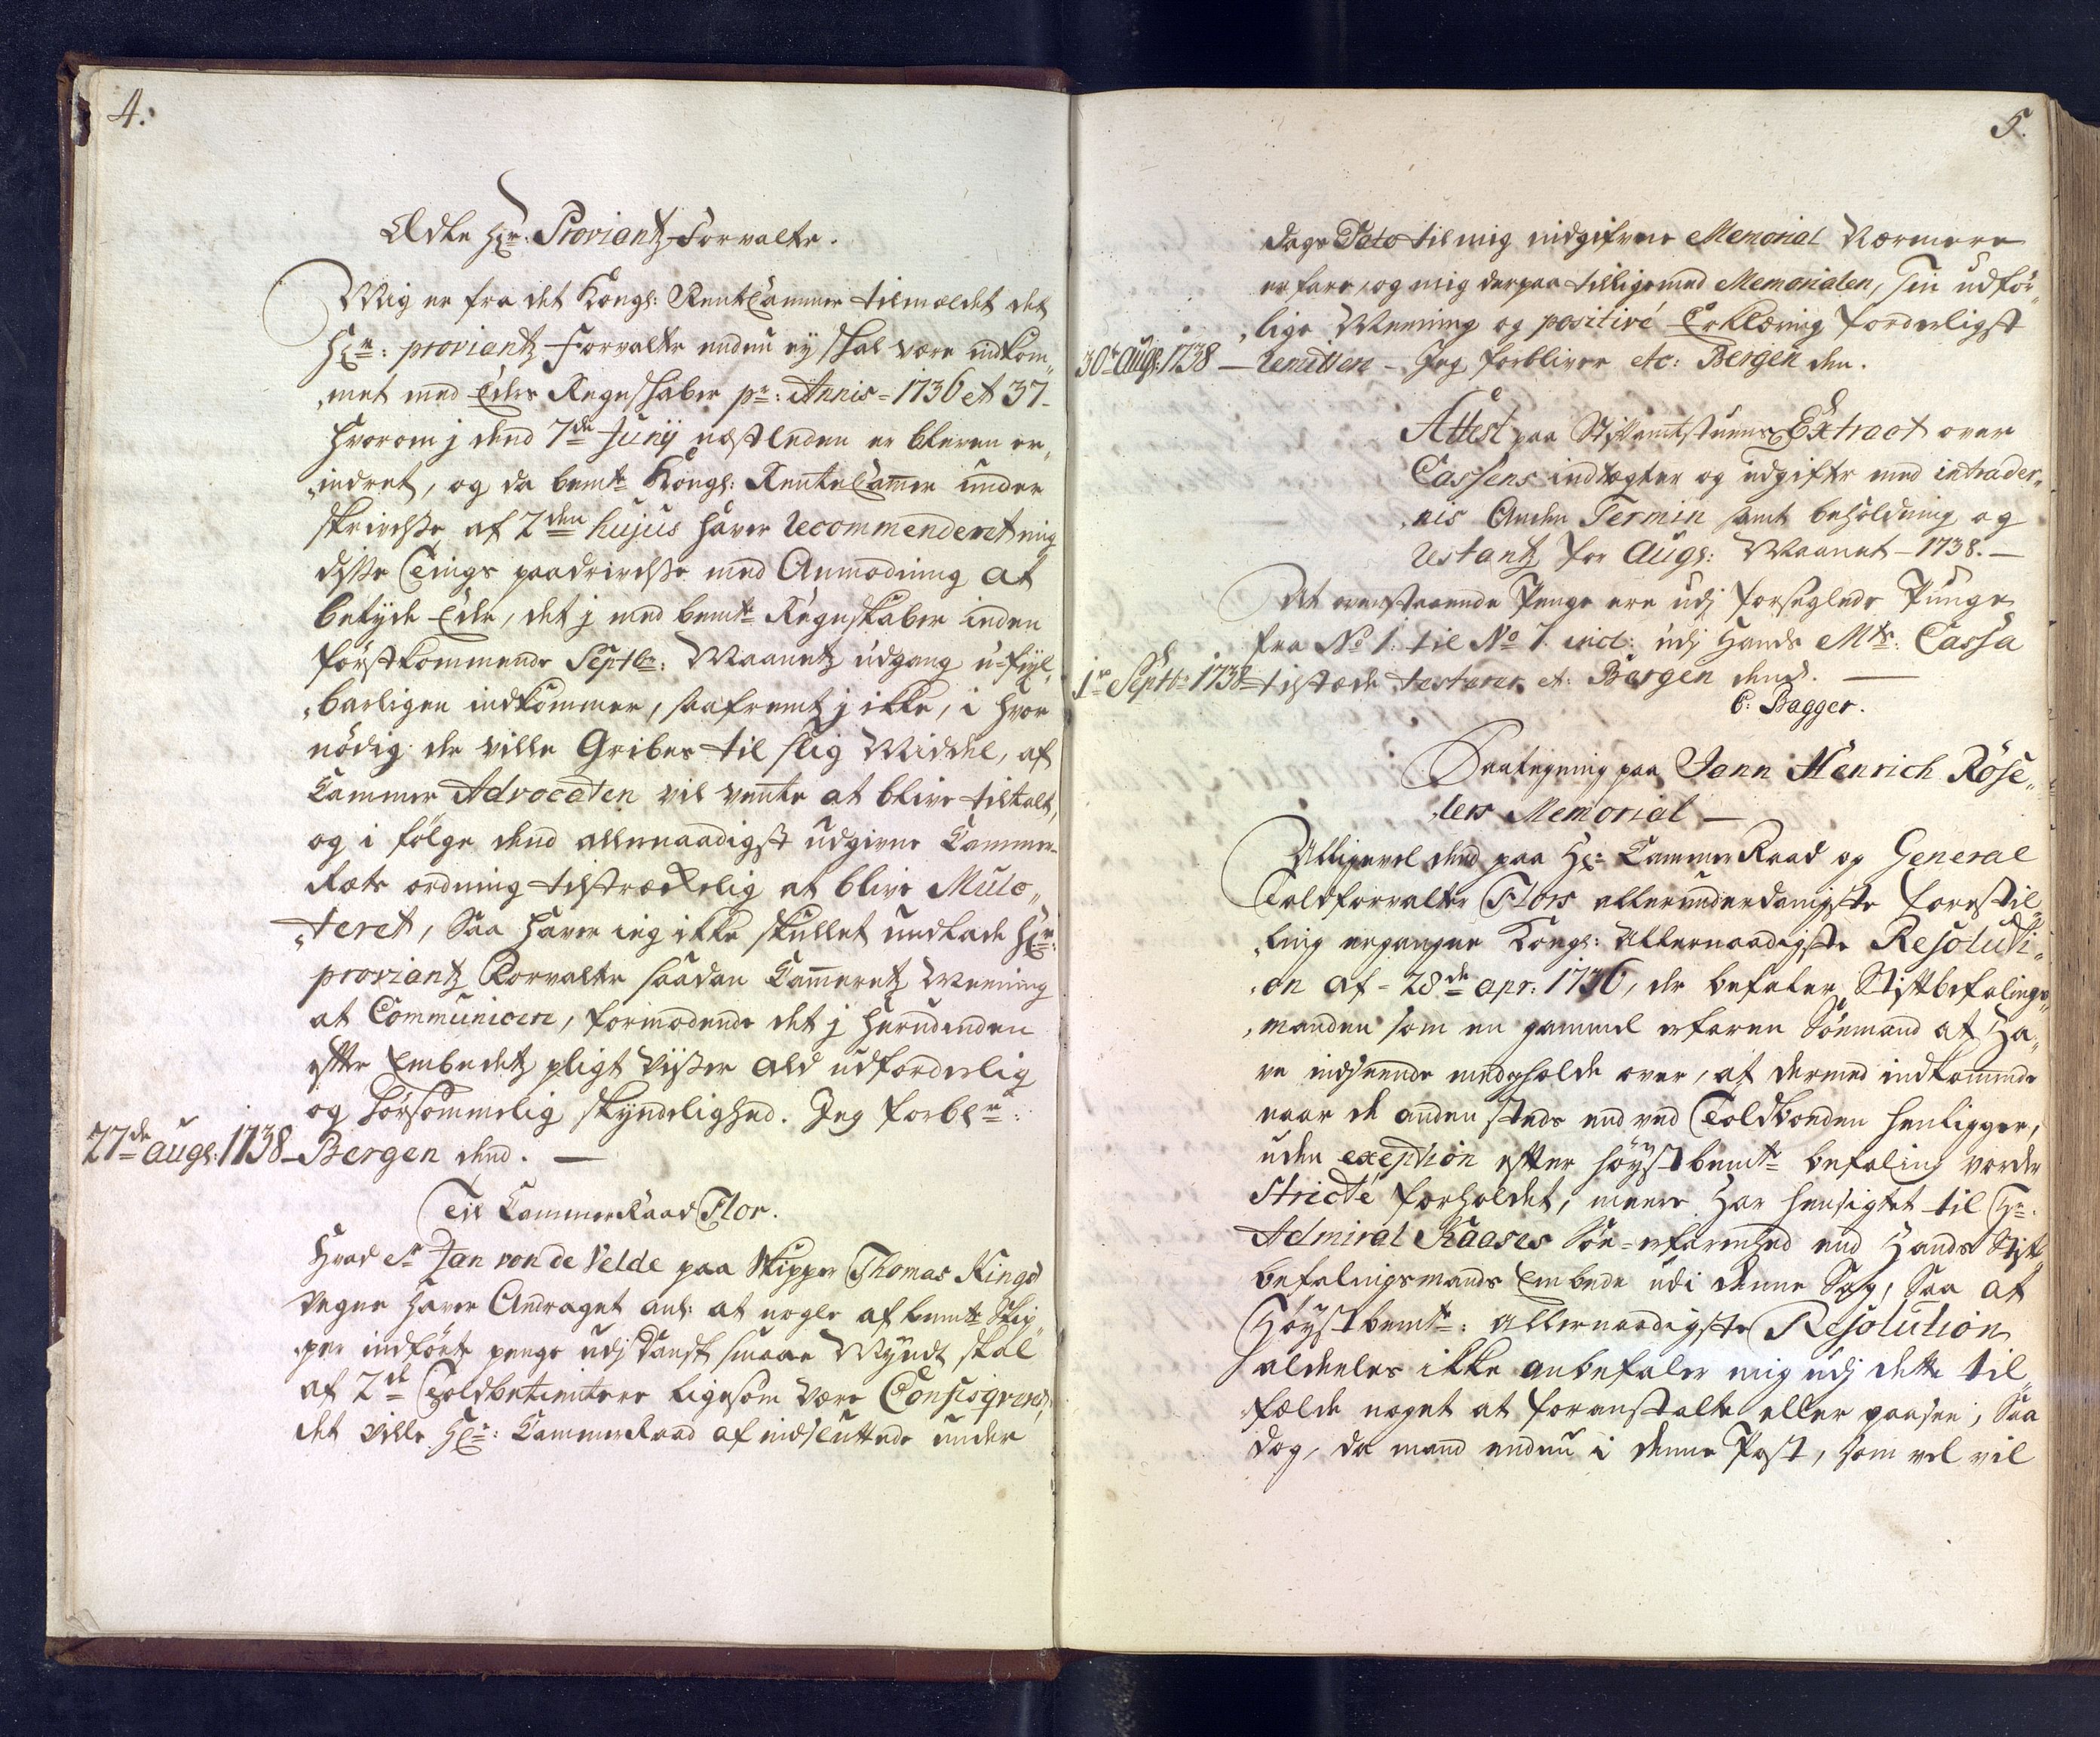 4.
Ædle Hr: Proviantz-Forvalter.
Mig er fra det Kongl: RenteCammer tilmeldet det
Hr: proviantz Forvalter endnu ey skal være indkom„
„met med Eders Regnskaber pr: Annis = 1736 et 37 -
hvorom j dend 7de Junij næstleden er bleven er„
„indret, og da bemte Kongl: RenteCammer under
skrivelse af 2den hujus haver recommenderet mig
disse Tings paadrivelse med Anmodning at
betyde Eder, det j med bemte Regnskaber inden
förstkommende Septbr: Maanetz udgang u-feyl„
„barligen indkommer, saafremt j ikke, i hvor
nödig de ville Gribes til slig Middel, af
Cammer Advocaten vil vente at blive tiltalt,
og i fölge dend allernaadigst udgivne Cammer-
Rets ordning tilstrækkelig at blive Mulc„
„teret, Saa haver ieg ikke skullet undlade Hr:
proviantz Forvalter saadan Cammeretz Meening
at Communicere, formodende det j herudinden
efter Embedetz pligt viiser ald udforderlig
og hörsommelig skyndelighed. Jeg forblr:
27de augs: 1738 - Bergen dend. —
Til CammerRaad Flor.
Hvad Sr Jan von de Velde paa Skipper Thomas Kings
vegne haver Andraget anl: at nogle af bemte Skip„
„per indförte penge udj Dansk smaae Myndt skal
af 2de Toldbetientere ligesom være Consigneret,
det ville Hr: CammerRaad af indsluttede under
5.
dags Dato til mig indgifvene Memorial Nærmere
erfare, og mig derpaa tilligemed Memorialen, Sin udför„
„lige Meening og positive Erklæring forderligst
30te augs: 1738 — remittere - Jeg forbliver etc: Bergen den.
Attest paa Stiftamtstuens Extract over
Cassens indtægter og udgifter med intrader„
„nis Anden Termin samt beholdning og
restantz for Augs: Maanet - 1738. —
At ovenstaaende Penge ere udj forseglede Punge
fra No 1. til No 7. incl: udj Hands Mts: Cassa
1te Septbr 1738 - tilstæde testerer et: Bergen dend. —
C: Bagger.
Paategning paa Jann Henrich Röse„
„lers Memorial —
Alligevel dend paa Hr: CammerRaad og General
Toldforvalter Flors allerunderdanigste forestil„
„ling ergangne Kongl: Allernaadigste Resoluti„
„on af = 28de apr: 1736, der befaler Stiftbefalings„
„manden som en gammel erfaren Söemand at Ha„
ve indseende med holde over, at dermed indkommende
naar de anden steds end ved Toldboden henligger,
uden exeption efter höystbemte befaling vorder
Stricté forholdet, meere har hensigtet til Hr.
Admiral Kaases Söe-erfarenhed end Hands Stift
befalingsmands Embede udi denne Sag, Saa at
Höystbemte: allernaadigste Resolution
aldeeles ikke anbefaler mig udj dette til„
„fælde noget at foranstalte eller paasee, Saa
dog, da mand endnu i denne Post, som vel vil